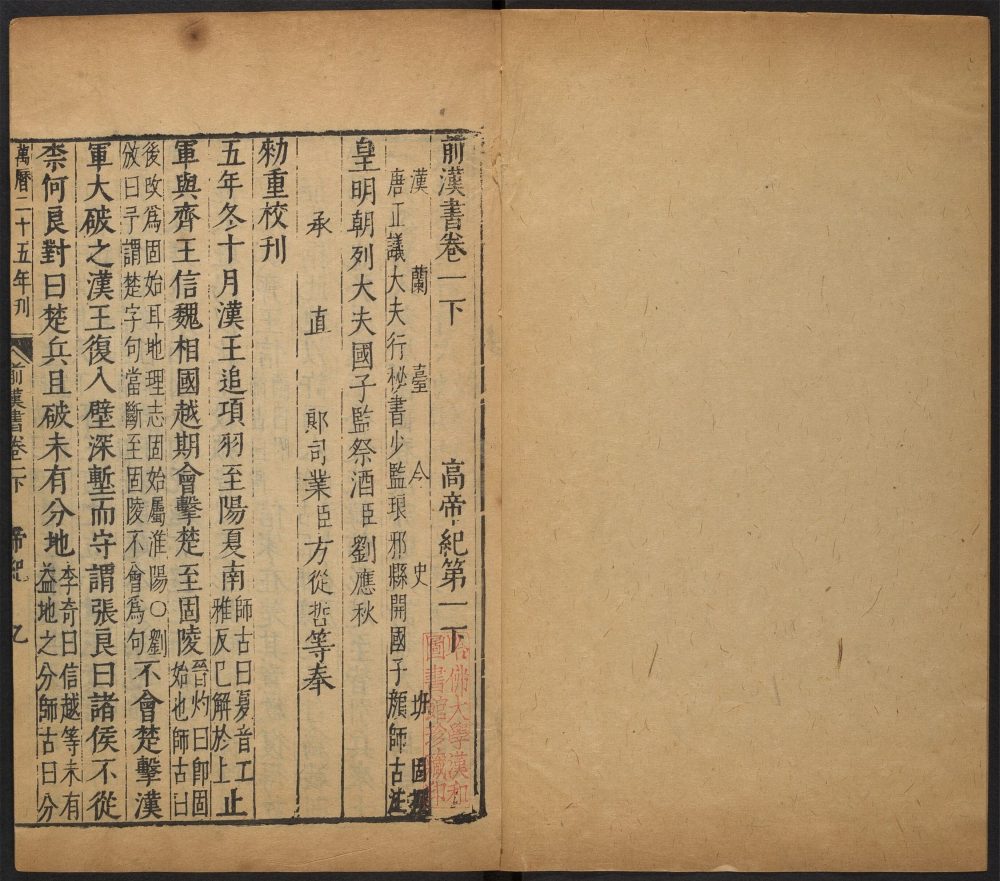 前漢書卷一下　高帝紀第一下
漢蘭臺令史班固撰
唐正議大夫行秘書少監琅邪縣開國子顏師古注
皇明朝列大夫國子監祭酒臣劉應秋
承直郎司業臣方從哲等奉
勑重校刊
五年冬十月漢王追項羽至陽夏南師古曰夏音工雅反已解於上止
軍與齊王信魏相國越期會擊楚至固陵晉灼曰卽固始也師古曰
後改爲固始耳地理志固始屬淮陽○劉攽曰予謂楚字句當斷至固陵不會爲句不會楚擊漢
軍大破之漢王復入壁深塹而守謂張良曰諸侯不從
柰何良對曰楚兵且破未有分地李奇曰信越等未有益地之分師古曰分
萬曆二十五年刊　前漢書卷一下　帝紀　乙
哈佛大學漢和
圖書館珍藏印